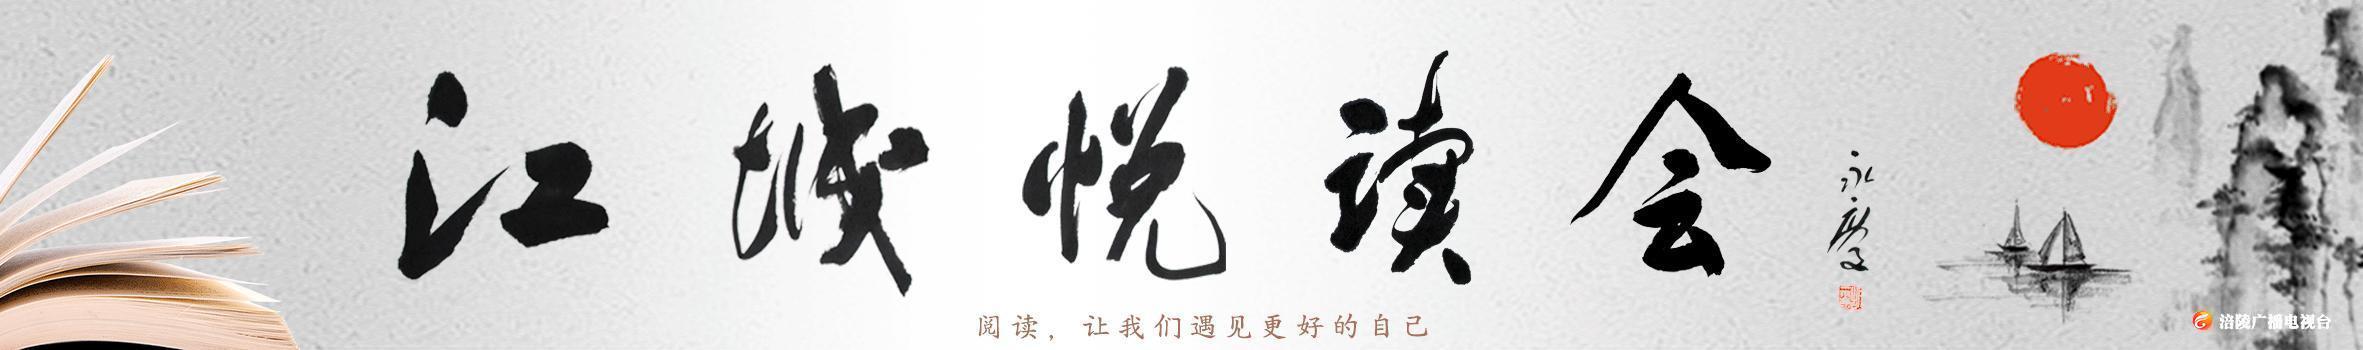 江城悦读会
永庆
阅读，让我们遇见更好的自己
涪陵广播电视台